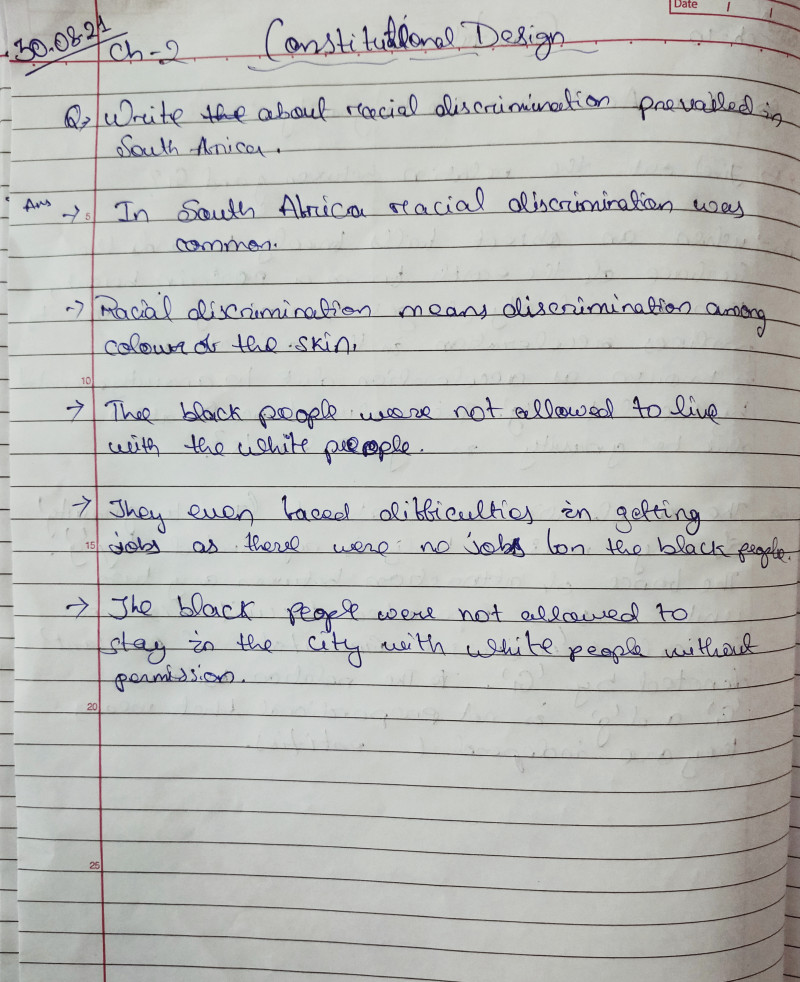 Date / /
30.08.21
Ch-2 Constitutional Design
Q> Write the about racial discrimination prevailed in
South Africa.
Ans → In South Africa racial discrimination was
5
common.
→ Racial discrimination means discrimination among
colour of the skin.
10
→ Thee black people weare not allowed to live
with the white people.
→ They even faced difficulties in getting
15 jobs as there were no jobs for the black people.
→ The black people were not allowed to
stay in the city with white people without
permission.
20
25